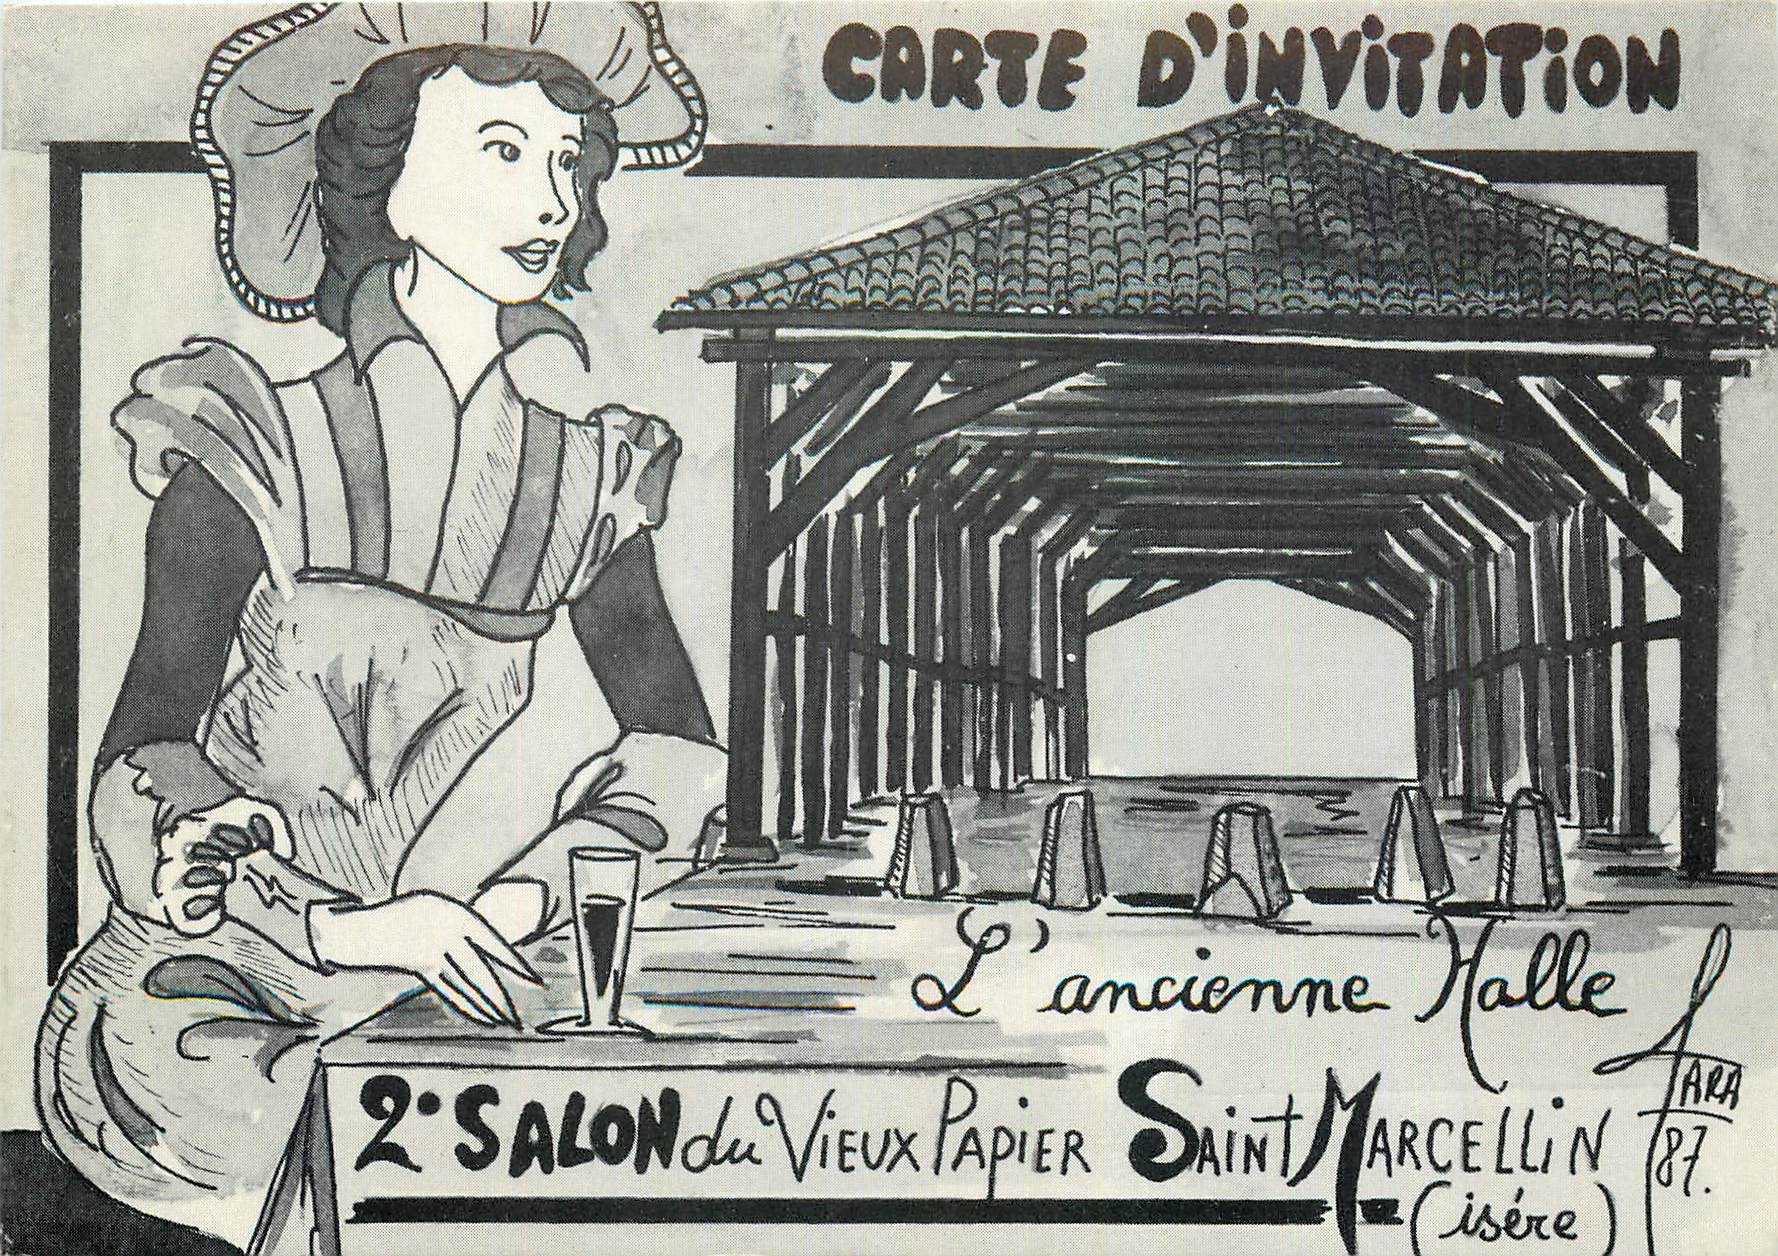 CARTE D'iNViTATiON
L'ancienne Halle
2e SALON du VIEUX PAPIER SAINT MARCELLiN
(isére)
FARA
87.